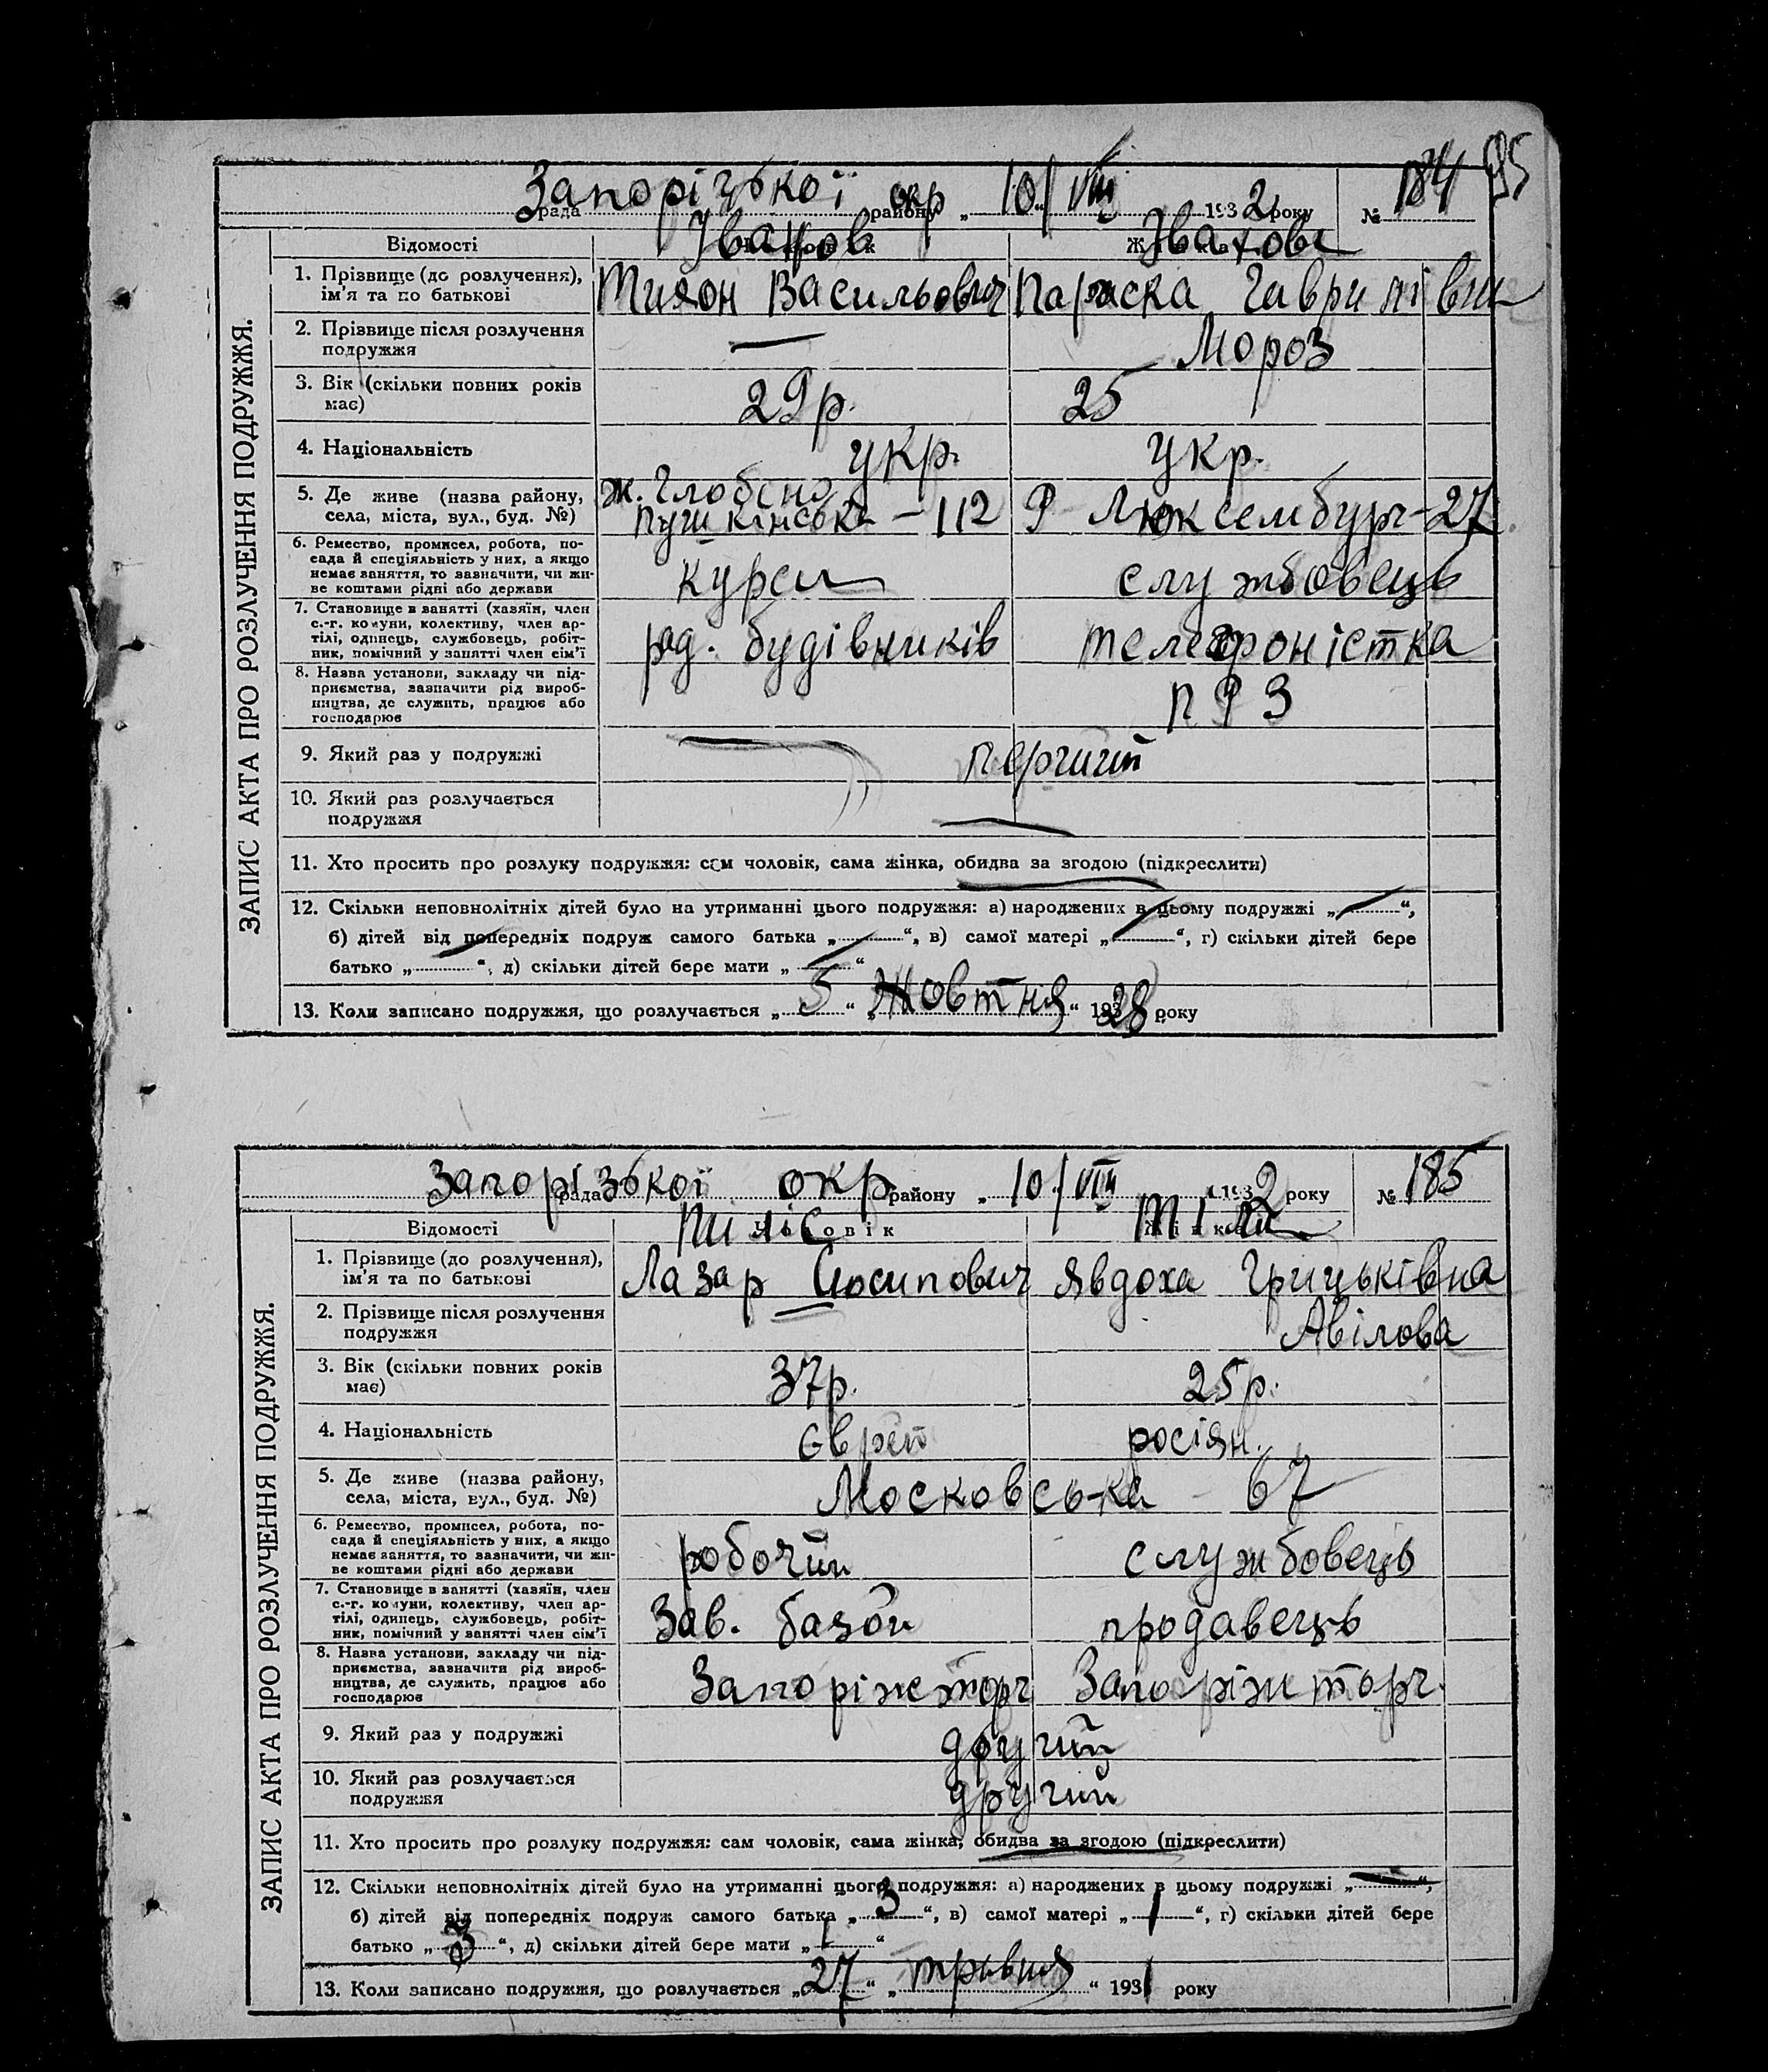 95
Запорізької окр 10/VIII
рада району „ “ 1932 року № 184
Відомості Чоловік Жінка
Іванов Іванова
1. Прізвище (до розлучення), ім'я та по батькові Тихон Васильович Параска Гаврилівна
2. Прізвище після розлучення подружжя — Мороз
3. Вік (скільки повних років має) 29 р. 25
4. Національність укр. укр.
5. Де живе (назва району, села, міста, вул., буд. №) Пушкінська – 112 Р Люксембург – 27
6. Ремество, промисел, робота, посада й спеціяльність у них, а якщо немає заняття, то зазначити, чи живе коштами рідні або держави курси службовець
7. Становище в занятті (хазяїн, член с.-г. комуни, колективу, член артілі, одинець, службовець, робітник, помічний у занятті член сім'ї рад. будівників телефоністка
8. Назва установи, закладу чи підприємства, зазначити рід виробництва, де служить, працює або господарює П Р З
9. Який раз у подружжі — перший
10. Який раз розлучається подружжя —
11. Хто просить про розлуку подружжя: сам чоловік, сама жінка, обидва за згодою (підкреслити)
12. Скільки неповнолітніх дітей було на утриманні цього подружжя: а) народжених в цьому подружжі „—“,
б) дітей від попередніх подруж самого батька „—“, в) самої матері „—“, г) скільки дітей бере
батько „—“, д) скільки дітей бере мати „—“
13. Коли записано подружжя, що розлучається „5“ „Жовтня“ 1928 року
ЗАПИС АКТА ПРО РОЗЛУЧЕННЯ ПОДРУЖЖЯ.
Запорізької окр 10/VIII
рада району „ “ 1932 року № 185
Відомості Чоловік Жінка
1. Прізвище (до розлучення), ім'я та по батькові Лазар Йосипович Явдоха Грицьківна
2. Прізвище після розлучення подружжя — Авілова
3. Вік (скільки повних років має) 37 р. 25 р.
4. Національність Єврей росіян.
5. Де живе (назва району, села, міста, вул., буд. №) Московська – 67
6. Ремество, промисел, робота, посада й спеціяльність у них, а якщо немає заняття, то зазначити, чи живе коштами рідні або держави робочий службовець
7. Становище в занятті (хазяїн, член с.-г. комуни, колективу, член артілі, одинець, службовець, робітник, помічний у занятті член сім'ї Зав. базой продавець
8. Назва установи, закладу чи підприємства, зазначити рід виробництва, де служить, працює або господарює Запоріжторг Запоріжторг.
9. Який раз у подружжі другий
10. Який раз розлучається подружжя другий
11. Хто просить про розлуку подружжя: сам чоловік, сама жінка, обидва за згодою (підкреслити)
12. Скільки неповнолітніх дітей було на утриманні цього подружжя: а) народжених в цьому подружжі „—“,
б) дітей від попередніх подруж самого батька „3“, в) самої матері „1“, г) скільки дітей бере
батько „3“, д) скільки дітей бере мати „1“
13. Коли записано подружжя, що розлучається „27“ „травня“ 1931 року
ЗАПИС АКТА ПРО РОЗЛУЧЕННЯ ПОДРУЖЖЯ.